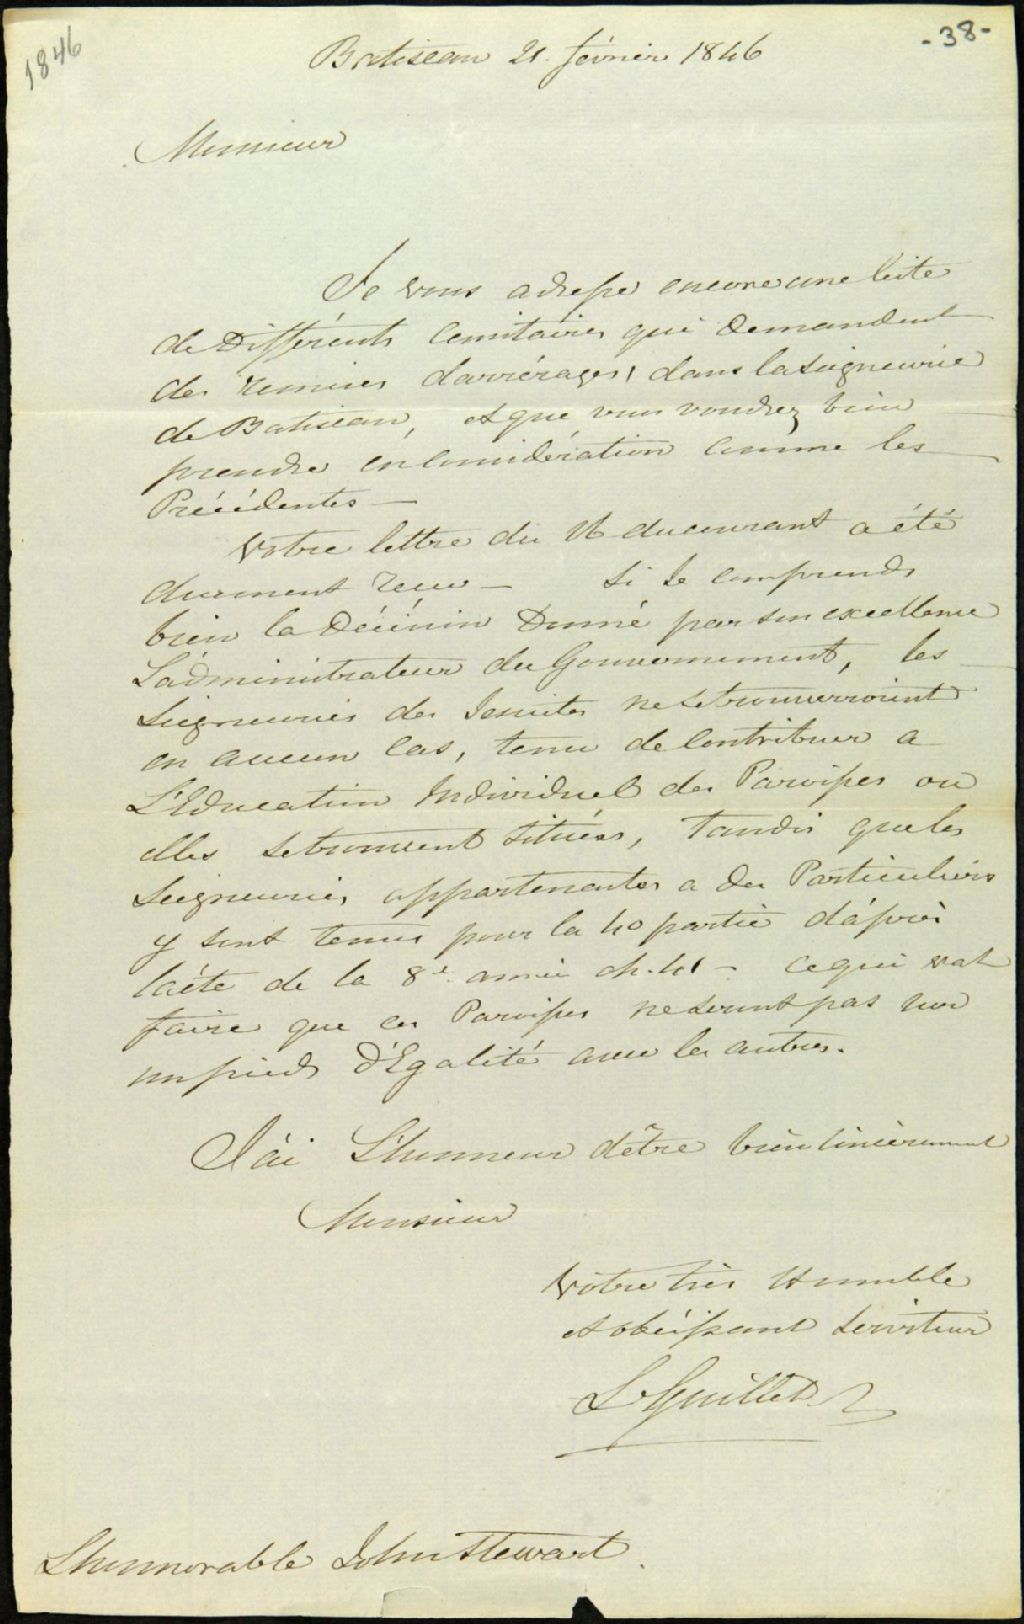 1846
-38-
Batiscan 21. février 1846
Monsieur
Je vous adresse encore une liste
de Différents Censitaires qui Demandent
des remises d'arrérages, dans la Seigneurie
de Batiscan, et que vous voudrez bien
prendre en Considération comme les
Précédentes —
Votre lettre du 16 du courant a été
duement recue — Si Je comprends
bien la Décision Donné par son excellence
L'administrateur du Gouvernement, les
Seigneuries des Jesuites ne se trouverroient
en aucun Cas, tenu de Contribuer a
L'Education Individuel des Paroisses ou
elles se trouvent Situées, Tandis que les
Seigneuries appartenantes a des Particuliers
y sont tenus pour la 40 partie d'áprès
l'acte de la 8e. année ch. 41 — Ce qui vat
faire que ces Paroisses ne seront pas sur
un pieds D'Egalité avec les autres.
J'ai L'honneur d'être bien sincèrement
Monsieur
Vôtre très Humble
et obéissant Serviteur
L Guillet
L'honnorable John Stewart.